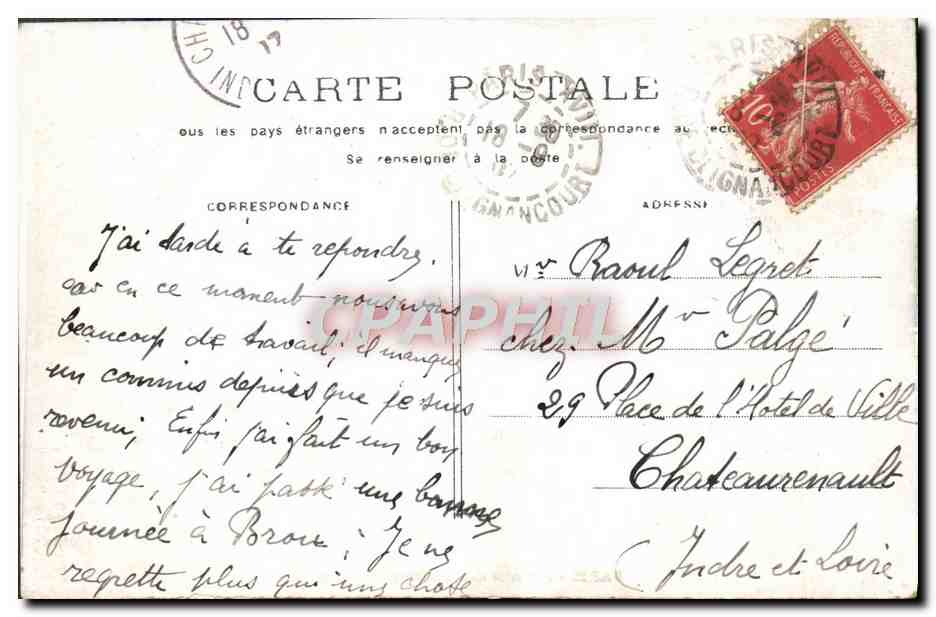 CARTE POSTALE
ous les pays étrangers n'acceptent pas la correspondance au rec
Se renseigner à la poste
CORRESPONDANCE
ADRESSE
J'ai tardé à te repondre,
car en ce moment nous avons
beaucoup de travail; il manque
un commis depuis que je suis
revenu; Enfin j'ai fait un bon
voyage, j'ai passé une bonne
journée à Brou; Je ne
regrette plus qu'une chose
Mr Raoul Legret
chez Mr Palgé
29 Place de l'Hotel de Ville
Chateaurenault
(Indre et Loire
REPUBLIQUE FRANÇAISE
10c
POSTES
PARIS
IGNANCOURT
PARIS
CLIGNANCOURT
18
CPAPHIL